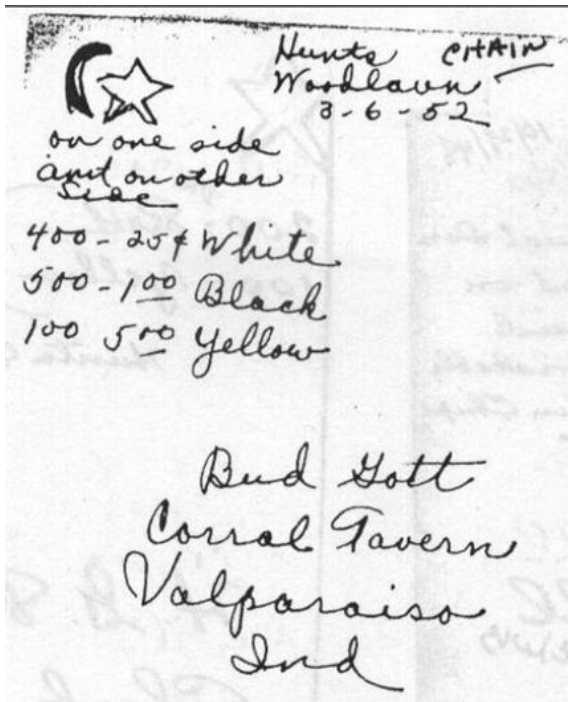 Hunts CHAIN
Woodlawn
3-6-52
on one side
and on other
side
400 - 25¢ White
500 - 1.00 Black
100 5.00 Yellow
Bud Gott
Corral Tavern
Valparaiso
Ind